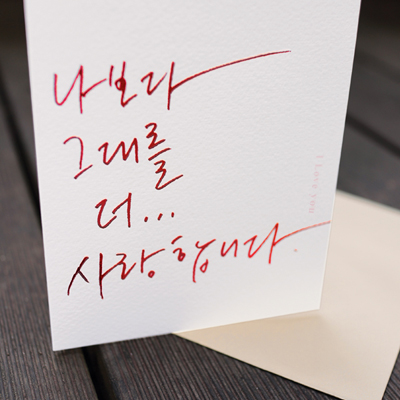 나보다
그대를
더...
사랑합니다.
I love you